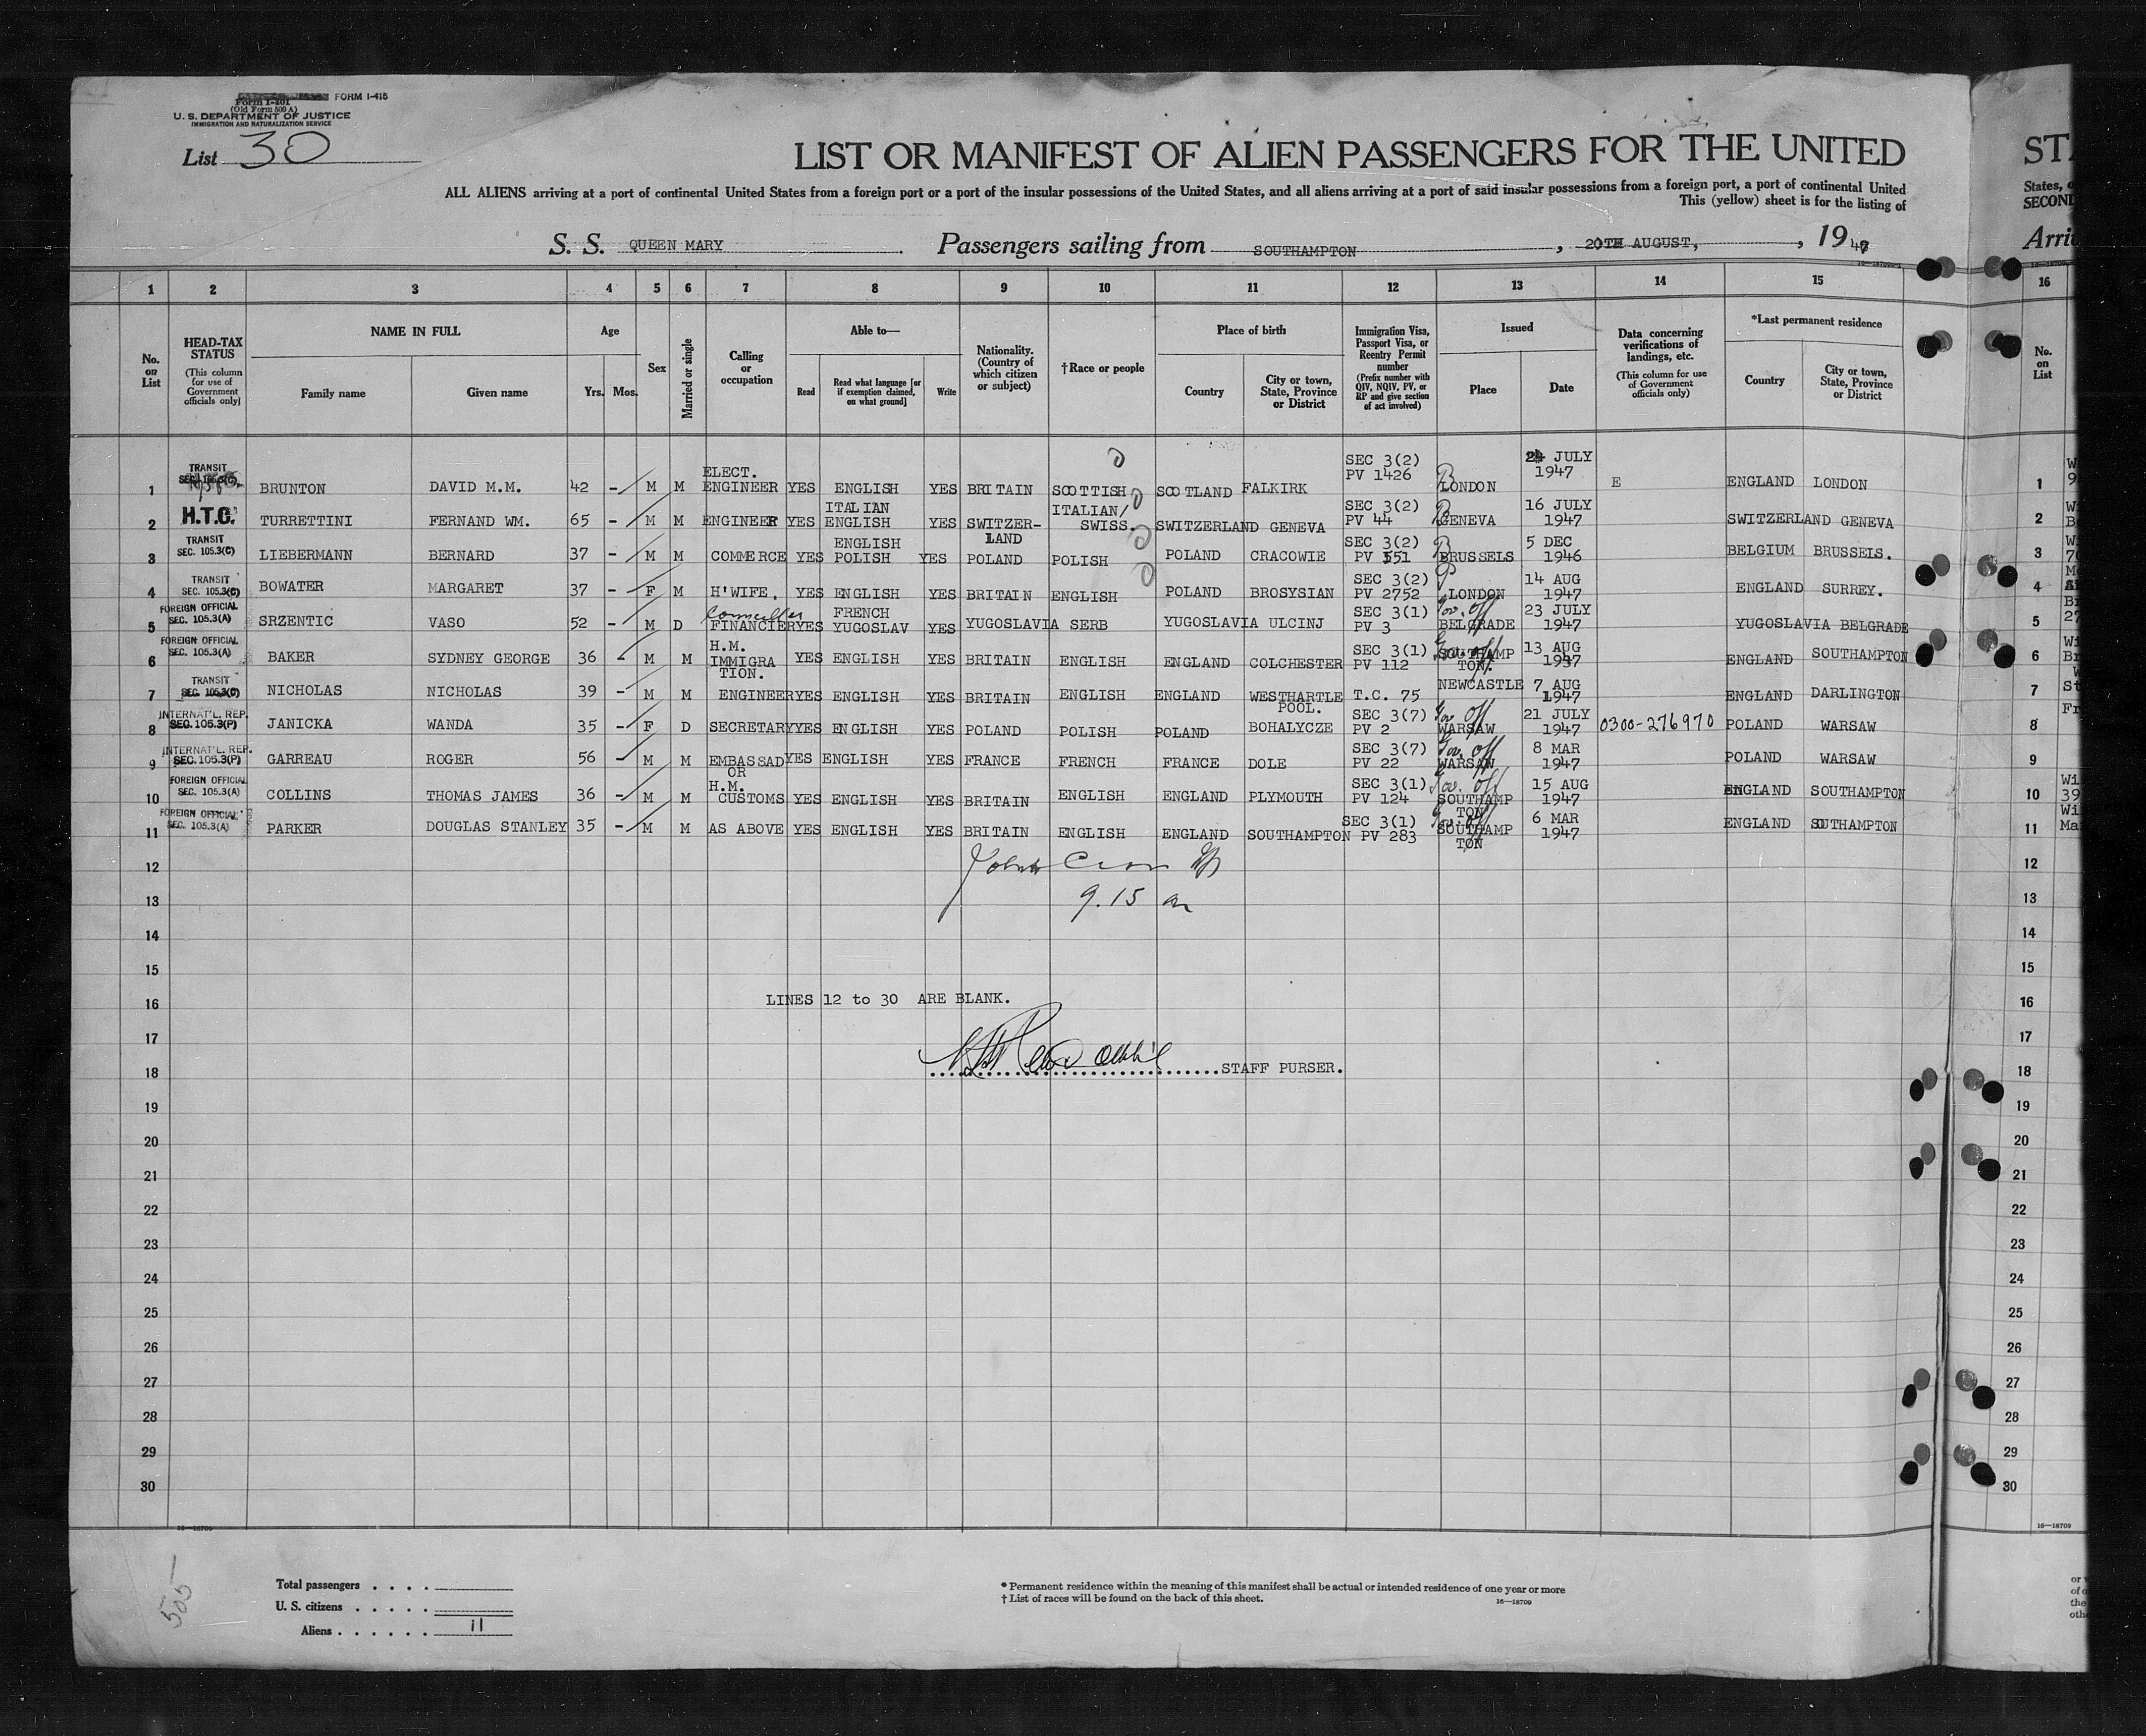 FORM I-415
Form I-401
(Old Form 500 A)
U. S. DEPARTMENT OF JUSTICE
IMMIGRATION AND NATURALIZATION SERVICE
List 30
LIST OR MANIFEST OF ALIEN PASSENGERS FOR THE UNITED
ALL ALIENS arriving at a port of continental United States from a foreign port or a port of the insular possessions of the United States, and all aliens arriving at a port of said insular possessions from a foreign port, a port of continental United
This (yellow) sheet is for the listing of
S. S. QUEEN MARY Passengers sailing from SOUTHAMPTON , 20TH AUGUST, , 1947
1 2 3 4 5 6 7 8 9 10 11 12 13 14 15
No. on List
HEAD-TAX STATUS (This column for use of Government officials only)
NAME IN FULL
Family name Given name
Age
Yrs. Mos.
Sex
Married or single
Calling or occupation
Able to—
Read Read what language [or if exemption claimed, on what ground] Write
Nationality. (Country of which citizen or subject)
†Race or people
Place of birth
Country City or town, State, Province or District
Immigration Visa, Passport Visa, or Reentry Permit number (Prefix number with QIV, NQIV, PV, or RP and give section of act involved)
Issued
Place Date
Data concerning verifications of landings, etc. (This column for use of Government officials only)
*Last permanent residence
Country City or town, State, Province or District
1 TRANSIT SEC. 105.3(C) BRUNTON DAVID M.M. 42 - M M ELECT. ENGINEER YES ENGLISH YES BRITAIN SCOTTISH SCOTLAND FALKIRK SEC 3(2) PV 1426 LONDON 24 JULY 1947 E ENGLAND LONDON
2 H.T.C. TURRETTINI FERNAND WM. 65 - M M ENGINEER YES ITALIAN ENGLISH YES SWITZER-LAND ITALIAN/ SWISS. SWITZERLAND GENEVA SEC 3(2) PV 44 GENEVA 16 JULY 1947 SWITZERLAND GENEVA
3 TRANSIT SEC. 105.3(C) LIEBERMANN BERNARD 37 - M M COMMERCE YES ENGLISH POLISH YES POLAND POLISH POLAND CRACOWIE SEC 3(2) PV 551 BRUSSELS 5 DEC 1946 BELGIUM BRUSSELS.
4 TRANSIT SEC. 105.3(C) BOWATER MARGARET 37 - F M H'WIFE. YES ENGLISH YES BRITAIN ENGLISH POLAND BROSYSIAN SEC 3(2) PV 2752 LONDON 14 AUG 1947 ENGLAND SURREY.
5 FOREIGN OFFICIAL SEC. 105.3(A) SRZENTIC VASO 52 - M D FINANCIER YES FRENCH YUGOSLAV YES YUGOSLAVIA SERB YUGOSLAVIA ULCINJ SEC 3(1) PV 3 Gov. off BELGRADE 23 JULY 1947 YUGOSLAVIA BELGRADE
6 FOREIGN OFFICIAL SEC. 105.3(A) BAKER SYDNEY GEORGE 36 - M M H.M. IMMIGRA TION. YES ENGLISH YES BRITAIN ENGLISH ENGLAND COLCHESTER SEC 3(1) PV 112 Gov. off SOUTHAMP TON. 13 AUG 1947 ENGLAND SOUTHAMPTON
7 TRANSIT SEC. 105.3(C) NICHOLAS NICHOLAS 39 - M M ENGINEER YES ENGLISH YES BRITAIN ENGLISH ENGLAND WESTHARTLE POOL. T.C. 75 NEWCASTLE 7 AUG 1947 ENGLAND DARLINGTON
8 INTERNAT'L. REP. SEC. 105.3(P) JANICKA WANDA 35 - F D SECRETARY YES ENGLISH YES POLAND POLISH POLAND BOHALYCZE SEC 3(7) PV 2 Gov. off WARSAW 21 JULY 1947 0300-276970 POLAND WARSAW
9 INTERNAT'L. REP. SEC. 105.3(P) GARREAU ROGER 56 - M M EMBASSAD OR YES ENGLISH YES FRANCE FRENCH FRANCE DOLE SEC 3(7) PV 22 Gov. off WARSAW 8 MAR 1947 POLAND WARSAW
10 FOREIGN OFFICIAL SEC. 105.3(A) COLLINS THOMAS JAMES 36 - M M H.M. CUSTOMS YES ENGLISH YES BRITAIN ENGLISH ENGLAND PLYMOUTH SEC 3(1) PV 124 Gov. off SOUTHAMP TON 15 AUG 1947 ENGLAND SOUTHAMPTON
11 FOREIGN OFFICIAL SEC. 105.3(A) PARKER DOUGLAS STANLEY 35 - M M AS ABOVE YES ENGLISH YES BRITAIN ENGLISH ENGLAND SOUTHAMPTON SEC 3(1) PV 283 Gov. off SOUTHAMP TON 6 MAR 1947 ENGLAND SOUTHAMPTON
12
13 9.15
14
15
16 LINES 12 to 30 ARE BLANK.
17
18 STAFF PURSER.
19
20
21
22
23
24
25
26
27
28
29
30
16—18709
505
Total passengers . . . .
U. S. citizens . . . . .
Aliens . . . . . . 11
* Permanent residence within the meaning of this manifest shall be actual or intended residence of one year or more
† List of races will be found on the back of this sheet.
16—18709
States,
SECOND
16
No. on List
1
2
3
4
5
6
7
8
9
10
11
12
13
14
15
16
17
18
19
20
21
22
23
24
25
26
27
28
29
30
16—18709